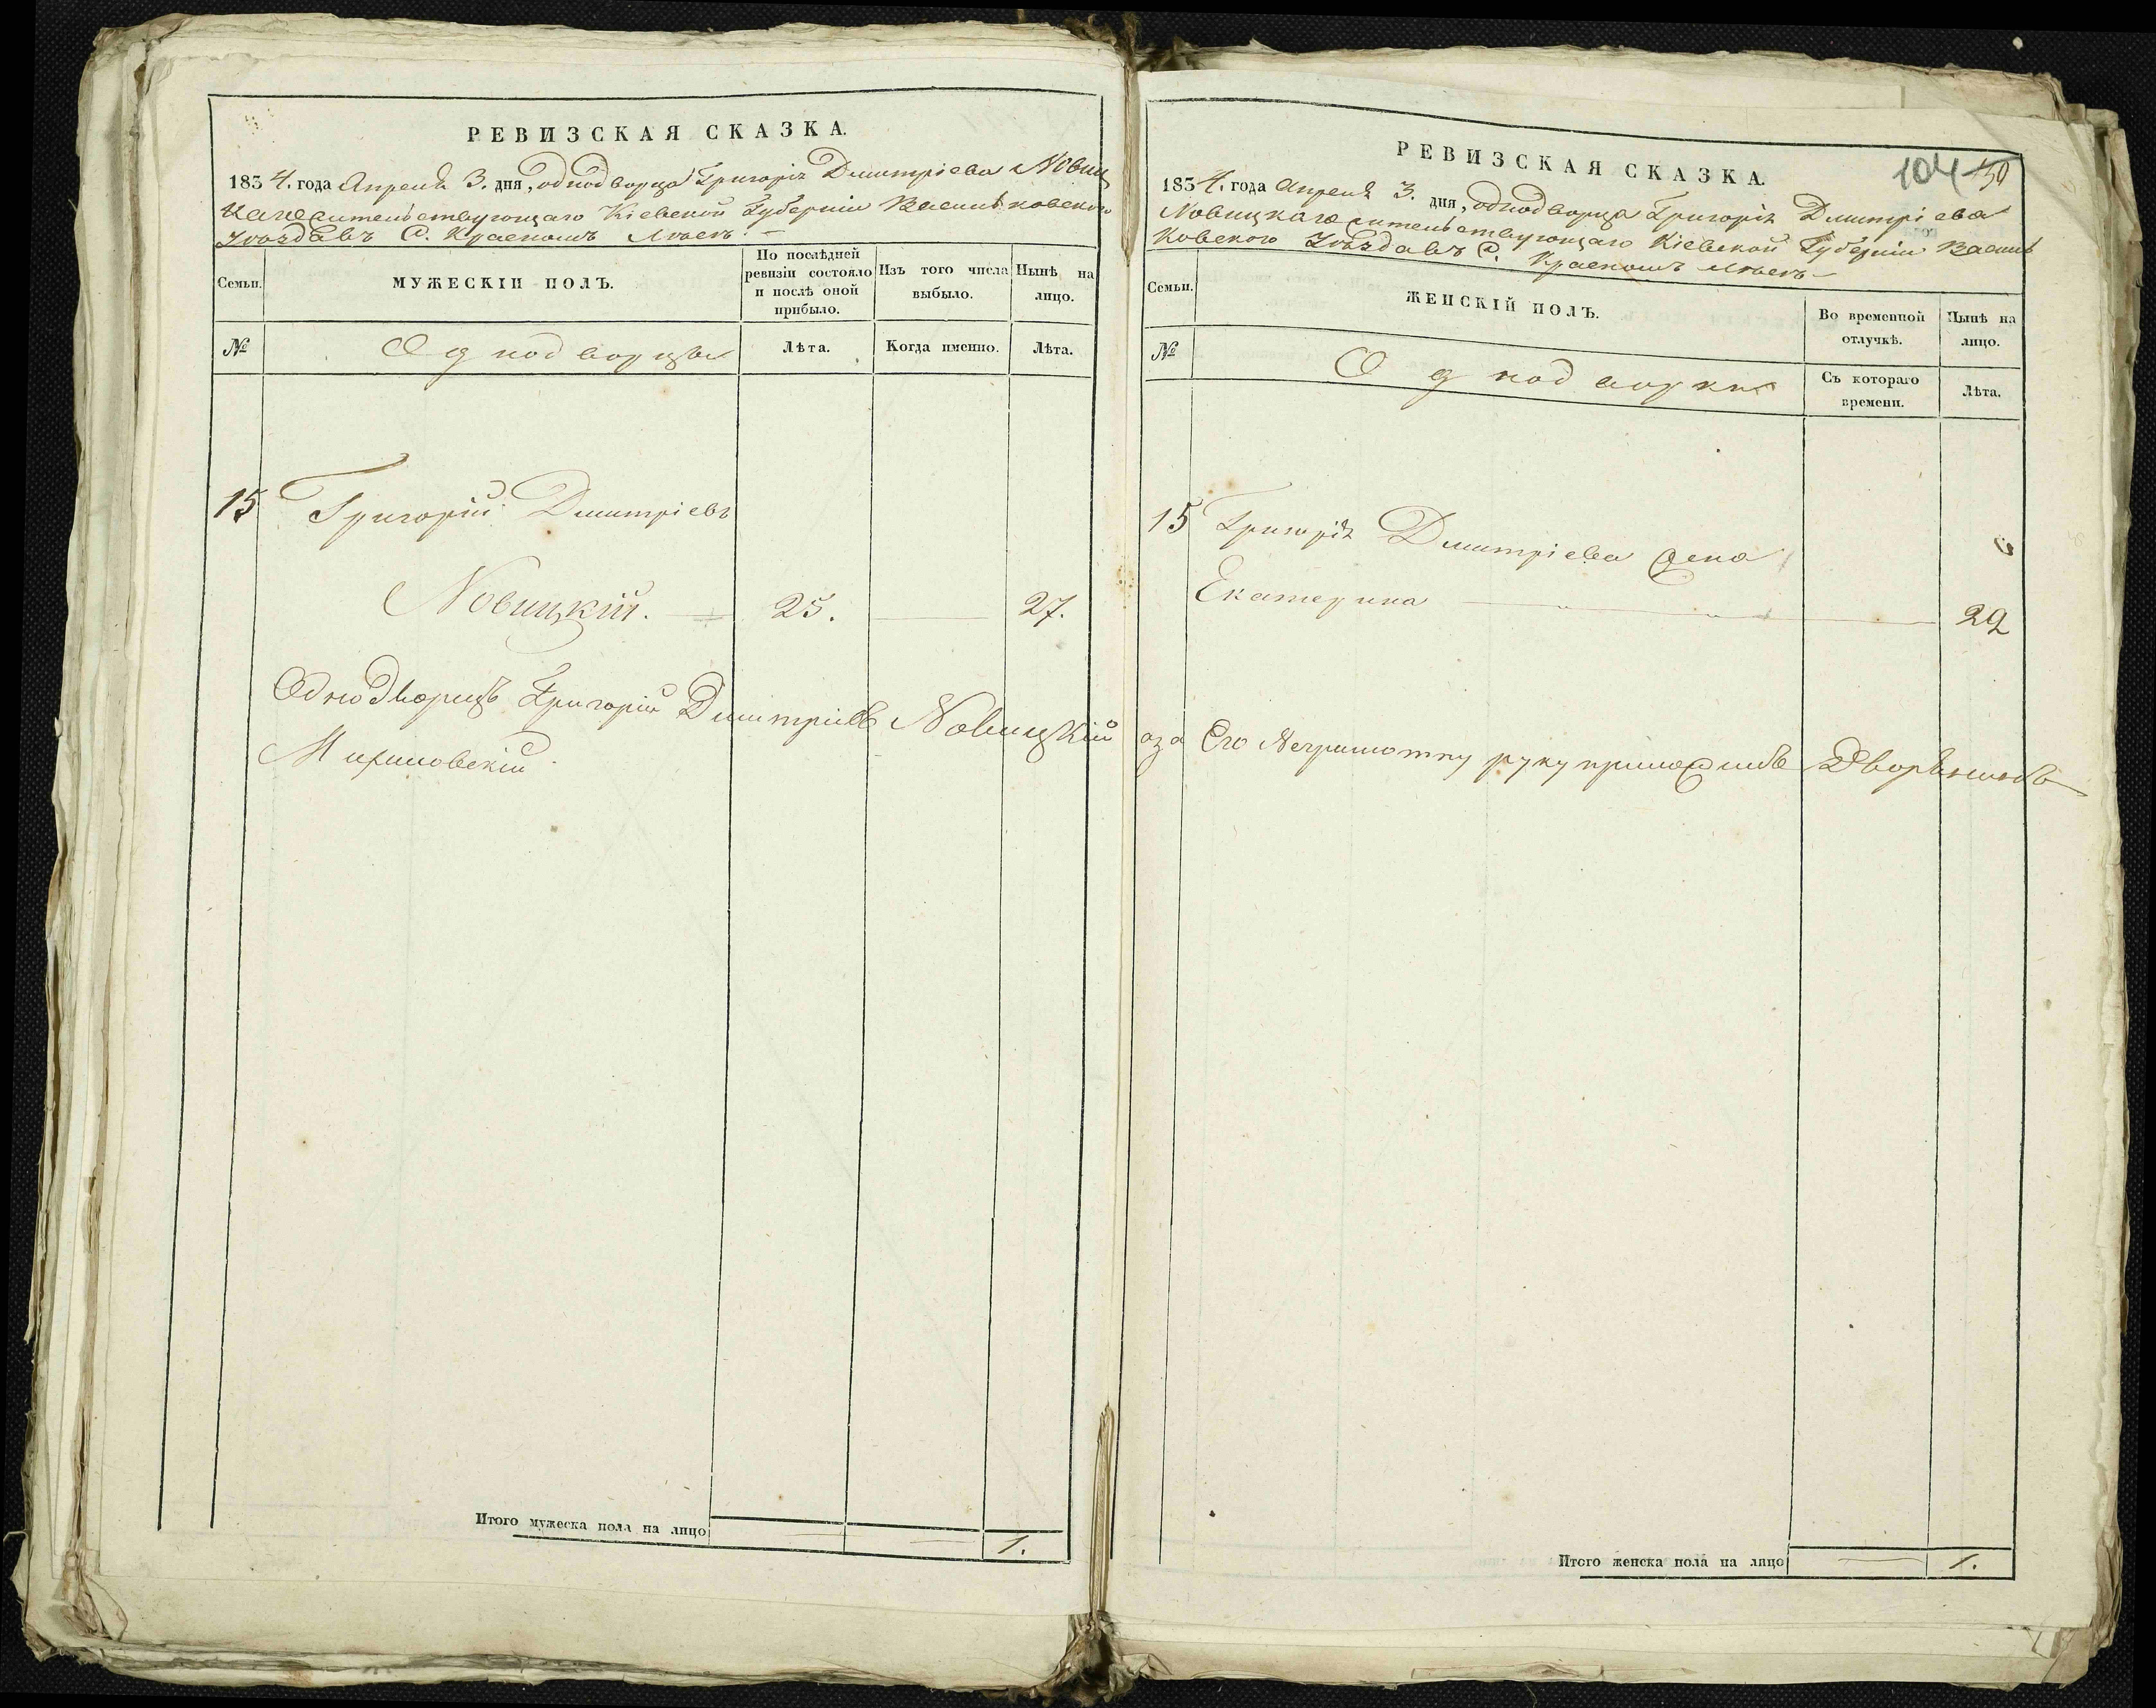 РЕВИЗСКАЯ СКАЗКА.
1834. года Апреля 3. дня, однодворца Григорія Дмитріева Новиц
каго жительствующаго Кіевской Губерніи Васильковскаго
Уѣзда въ С. Красномъ Лѣсѣ. —
Семьи.
МУЖЕСКІЙ ПОЛЪ.
По послѣдней ревизіи состояло и послѣ оной прибыло.
Изъ того числа выбыло.
Нынѣ на лицо.
№
Однодворцы
Лѣта.
Когда именно.
Лѣта.
15 Григорій Дмитріевъ
Новицкій. — 25. — 27.
Однодворецъ Григорій Дмитріевъ Новицкій
Итого мужеска пола на лицо 1.
104 50
РЕВИЗСКАЯ СКАЗКА.
1834. года Апреля 3. дня, однодворца Григорія Дмитріева
Новицкаго жительствующаго Кіевской Губерніи Василь
ковского Уѣзда въ С. Красномъ Лѣсѣ —
Семьи.
ЖЕНСКІЙ ПОЛЪ.
Во временной отлучкѣ.
Нынѣ на лицо.
№
Однодворки
Съ котораго времени.
Лѣта.
15 Григорія Дмитріева жена
Екатерина — 22
а за Его Неграмотну руку приложилъ Дворянинъ
Итого женска пола на лицо 1.